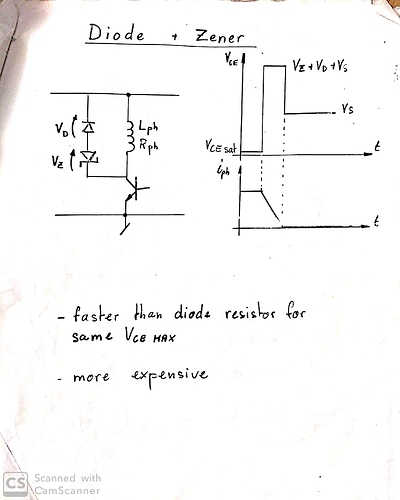 Diode + Zener
VCE
VZ + VD + VS
VS
VCE sat
t
iph
t
VD
VZ
Lph
Rph
- faster than diode resistor for
same VCE MAX
- more expensive
CS Scanned with
CamScanner